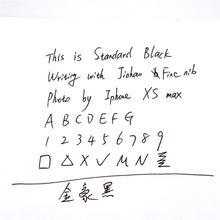 This is Standard Black
Writing with Jinhao Fine nib
Photo by Iphone XS max
A B C D E F G
1 2 3 4 5 6 7 8 9
□ △ X √ M N
金豪黑